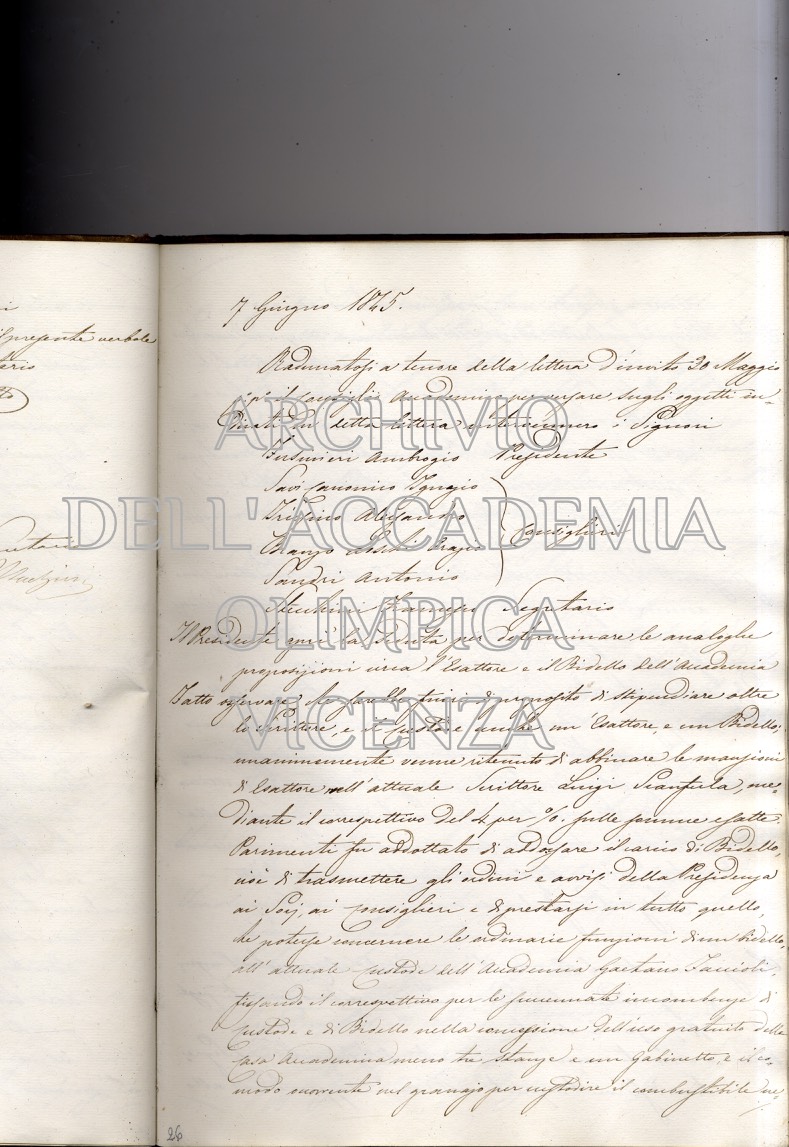 presente verbale
7 Giugno 1845.
Radunatosi a tenore della lettera d'invito 30 Maggio
p.p. il Consiglio Accademico per versare sugli oggetti in-
dicati in detta lettera intervennero i Signori
Ambrogio Presidente
Savi canonico Ignazio
Trissino Alessandro
Consiglieri
Sandri Antonio
Stecchini Francesco Segretario
Il Presidente aprì la Seduta per determinare le analoghe
proposizioni circa l'Esattore e il Bidello dell'Accademia
Fatto osservare che sarebbe fuori di proposito di stipendiare oltre
lo Scrittore, e il Custode anche un Esattore, e un Bidello;
unanimemente venne ritenuto di abbinare le mansioni
di Esattore nell'attuale Scrittore Luigi, me-
diante il correspettivo del 4 per %. sulle somme esatte.
Parimenti fu addottato di addossare il carico di Bidello,
cioè di trasmettere gli ordini e avvisi della Presidenza
ai Socj, ai Consiglieri e di prestarsi in tutto quello,
che potesse concernere le ordinarie funzioni di un bidello,
all'attuale Custode dell'Accademia Gaetano Faccioli,
fissando il correspettivo per le succennate incombenze di
Custode e di Bidello nella concessione dell'uso gratuito della
Casa Accademica meno tre stanze e un Gabinetto, e il co-
modo occorrente nel granajo per custodire il combustibile ne-
26
ARCHIVIO
DELL'ACCADEMIA
OLIMPICA
VICENZA